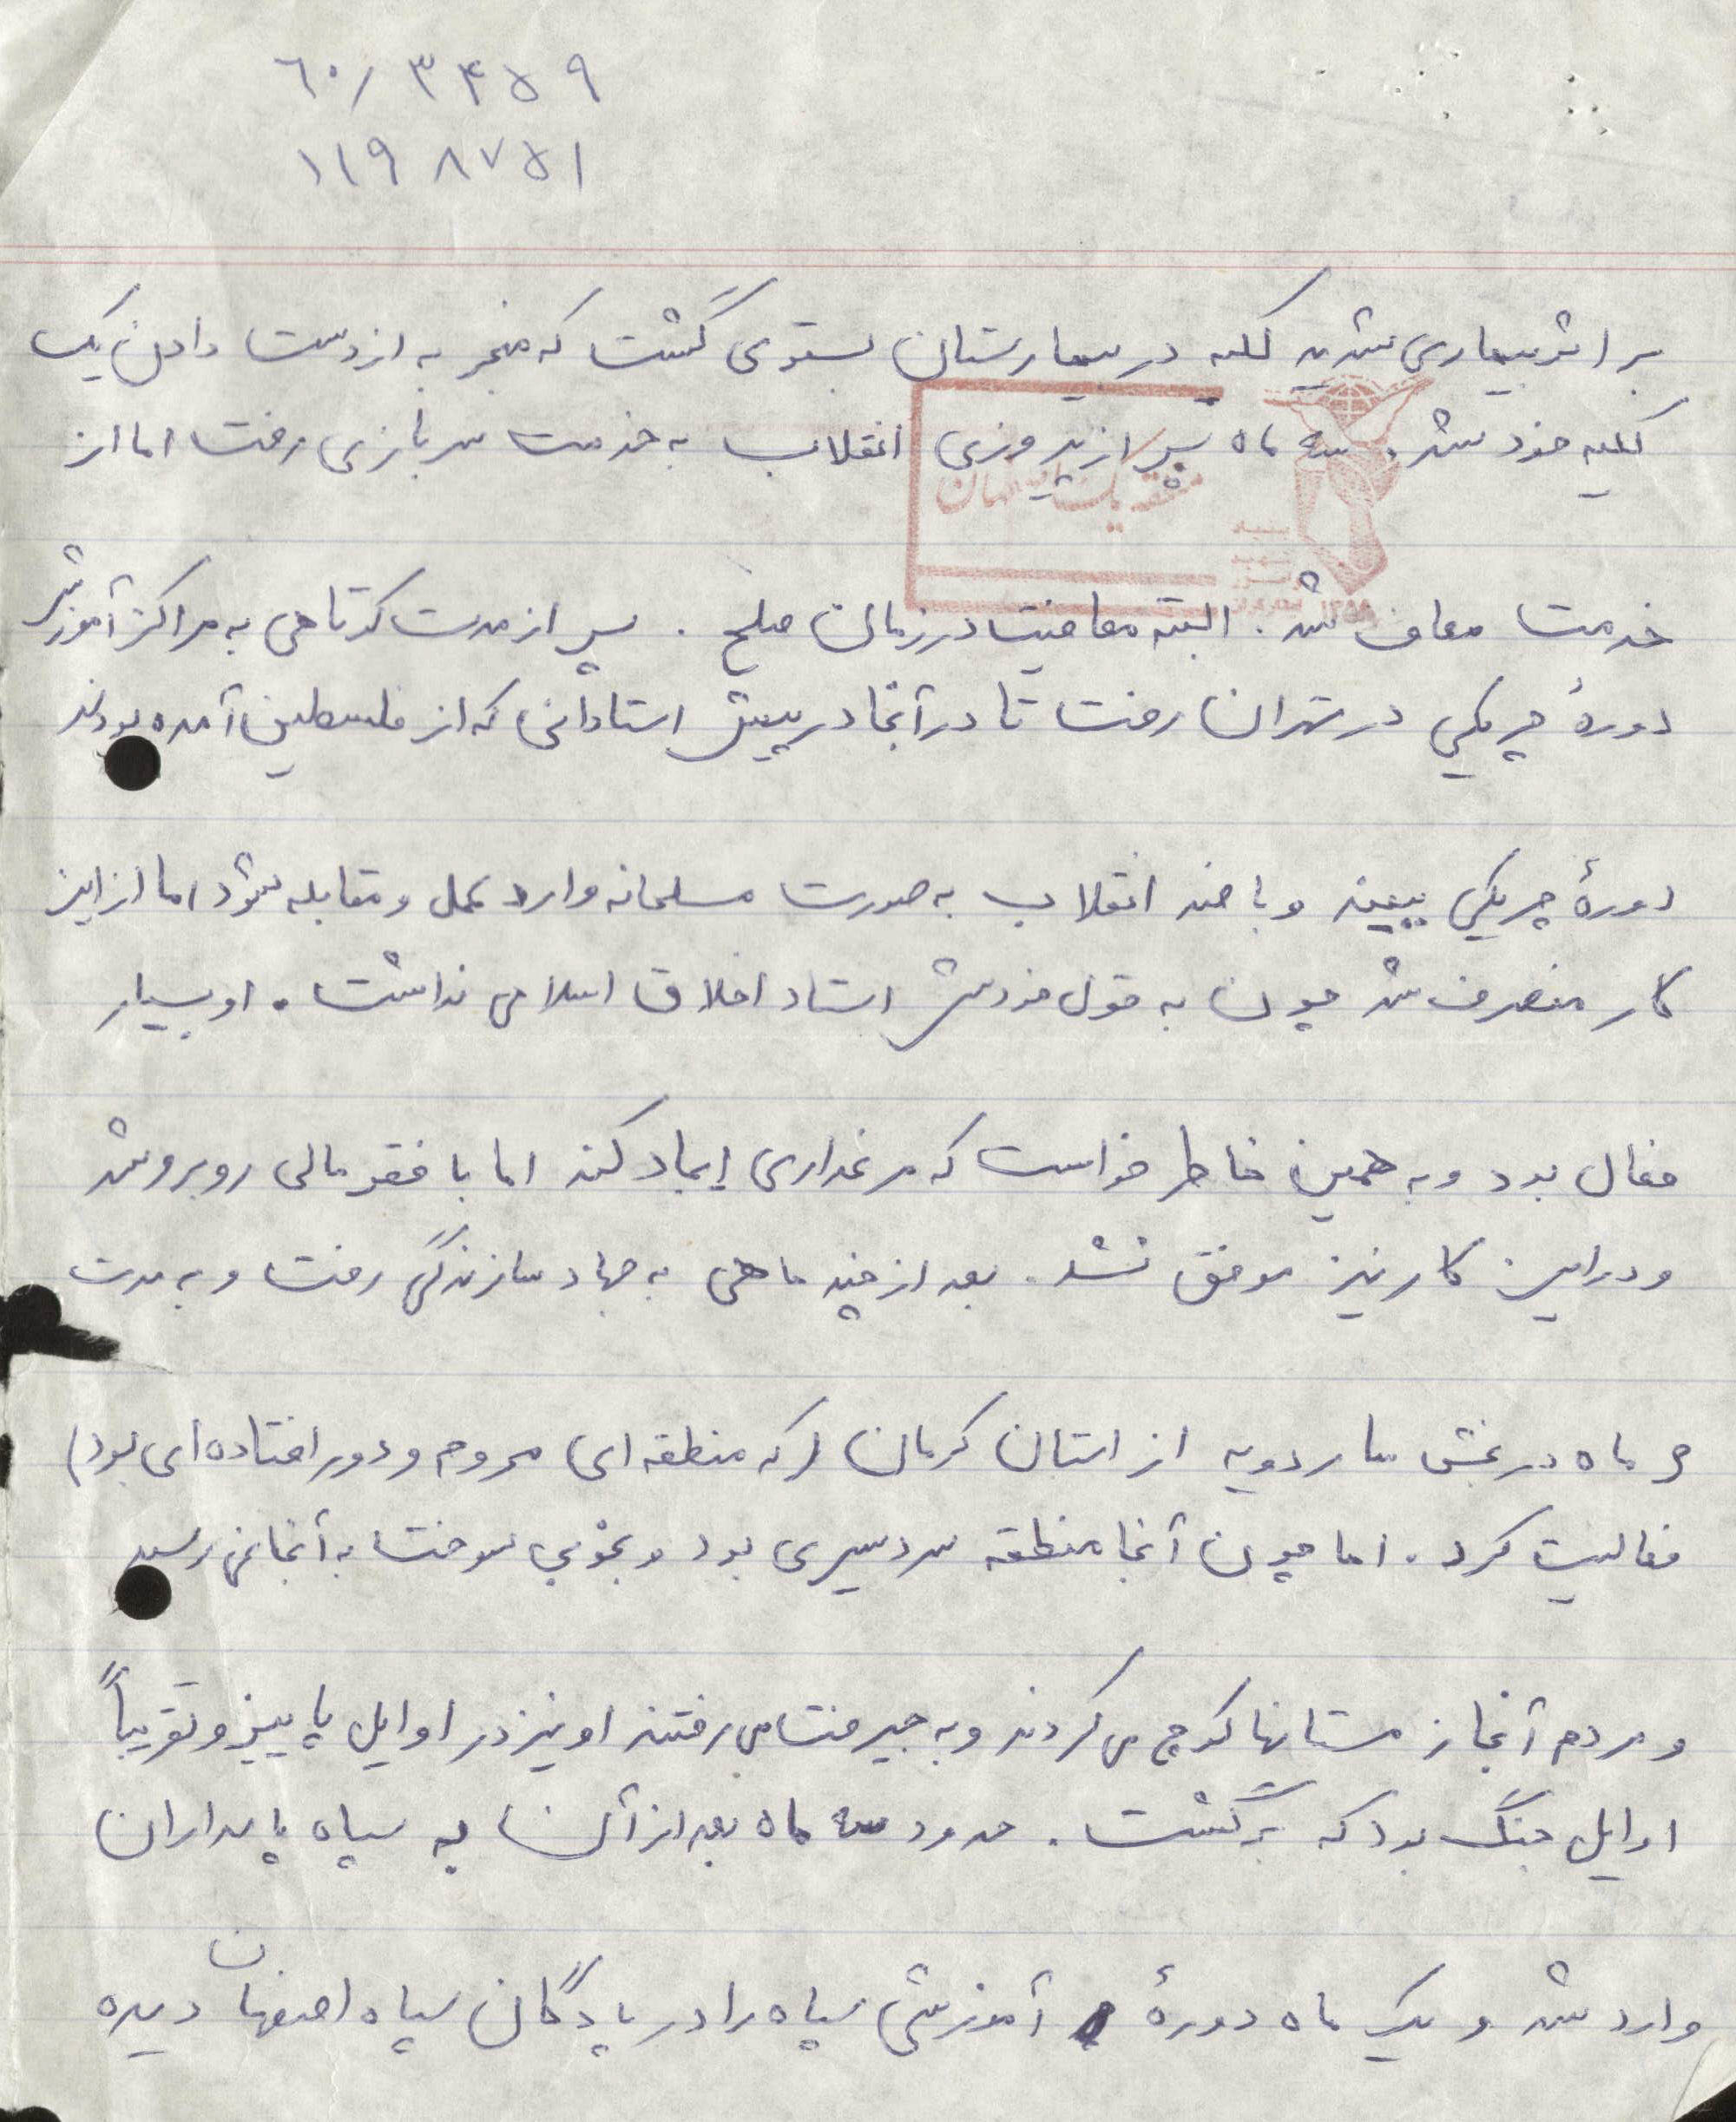 ۶۰/۳۴۵۹
۱۱۹۸۷۵۱
بر اثر بیماری شدید کلیه در بیمارستان بستری گشت که منجر به از دست دادن یک
کلیه خود شد. سه ماه پس از پیروزی انقلاب به خدمت سربازی رفت اما از
خدمت معاف شد. البته معافیت در زمان صلح. پس از مدت کوتاهی به مراکز آموزش
دورۀ چریکی در تهران رفت تا در آنجا در پیش استادانی که از فلسطین آمده بودند
دورۀ چریکی ببیند و با ضد انقلاب به صورت مسلحانه وارد عمل و مقابله شود اما از این
کار منصرف شد چون به قول خودش استاد اخلاق اسلامی نداشت. او بسیار
فعال بود و به همین خاطر خواست که مرغداری ایجاد کند اما با فقر مالی روبرو شد
و در این کار نیز موفق نشد. بعد از چند ماهی به جهاد سازندگی رفت و به مدت
ماه در بخش ساردویه از استان کرمان (که منطقه ای محروم و دور افتاده ای بود)
فعالیت کرد. اما چون آنجا منطقه سردسیری بود و بخوبی سوخت به آنجا نمی رسید
و مردم آنجا زمستانها کوچ می کردند و به جیرفت می رفتند او نیز در اوایل پاییز و تقریباً
اوایل جنگ بود که برگشت. حدود سه ماه بعد از آن به سپاه پاسداران
وارد شد و یک ماه دورۀ آموزشی سپاه را در پادگان سپاه اصفهان دیده
منطقه یک اصفهان